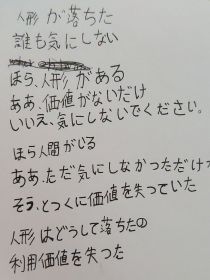 人形が落ちた
誰も気にしない
ほら、人形がある
ああ、価値がないだけ
いいえ、気にしないでください。
ほら人間がいる
ああ、ただ気にしなかっただけ
そう、とっくに価値を失っていた
人形はどうして落ちたの
利用価値を失った